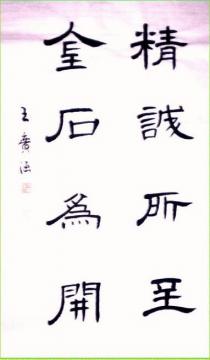 精誠所至
金石為開
王